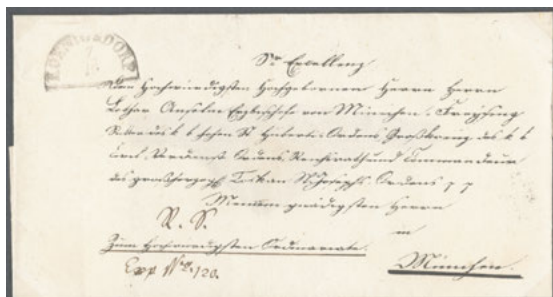 KOENIGSDORF
Sr Excellenz
dem Hochwürdigsten Hochgebornen Herrn Herrn
Lothar Anselm Erzbischofe von München-Freysing
Ritter des k. b. hohen St Huberts-Ordens, Großkreuz des k. b.
Civil-Verdienst Ordens, Reichsrath und Commandeur
des großherzogl. Toskan. St Josephs Ordens p p
Meinem gnädigsten Herrn
R. S.
in
Zum Hochwürdigsten Ordinariate.
München.
Exp. Nro. 120.